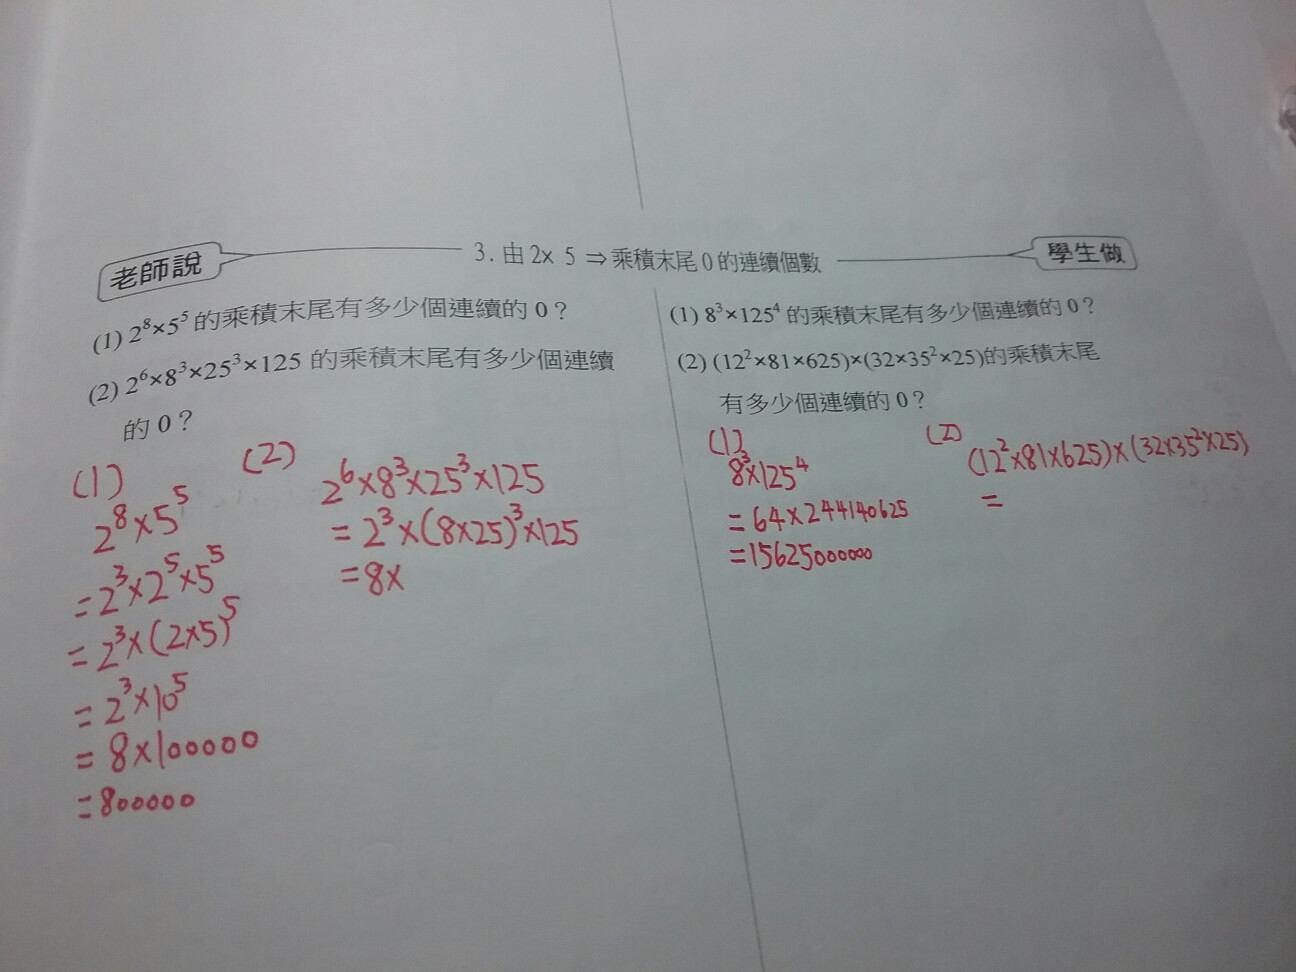 3. 由 2x 5 ⇒ 乘積末尾 0 的連續個數
老師說
(1) 2⁸×5⁵ 的乘積末尾有多少個連續的 0？
(2) 2⁶×8³×25³×125 的乘積末尾有多少個連續
的 0？
(1)
2⁸×5⁵
=2³×2⁵×5⁵
=2³×(2×5)⁵
=2³×10⁵
=8×100000
=800000
(2)
2⁶×8³×25³×125
=2³×(8×25)³×125
=8×
學生做
(1) 8³×125⁴ 的乘積末尾有多少個連續的 0？
(2) (12²×81×625)×(32×35²×25)的乘積末尾
有多少個連續的 0？
(1)
8³×125⁴
=64×244140625
=15625000000
(2)
(12²×81×625)×(32×35²×25)
=